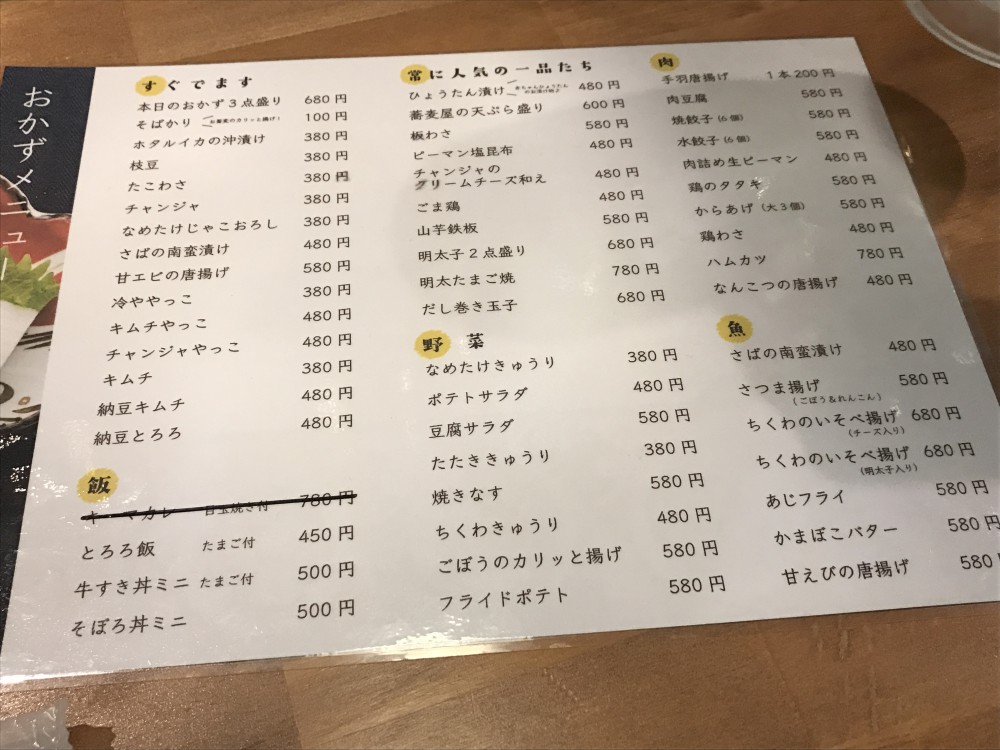 おかずメニュー
すぐでます
本日のおかず３点盛り 680 円
そばかり お蕎麦のカリッと揚げ！ 100 円
ホタルイカの沖漬け 380 円
枝豆 380 円
たこわさ 380 円
チャンジャ 380 円
なめたけじゃこおろし 380 円
さばの南蛮漬け 480 円
甘エビの唐揚げ 580 円
冷ややっこ 380 円
キムチやっこ 480 円
チャンジャやっこ 480 円
キムチ 380 円
納豆キムチ 480 円
納豆とろろ 480 円
飯
キーマカレー 目玉焼き付 780 円
とろろ飯 たまご付 450 円
牛すき丼ミニ たまご付 500 円
そぼろ丼ミニ 500 円
常に人気の一品たち
ひょうたん漬け 480 円
蕎麦屋の天ぷら盛り 600 円
板わさ 580 円
ピーマン塩昆布 480 円
チャンジャの
クリームチーズ和え 480 円
ごま鶏 480 円
山芋鉄板 580 円
明太子２点盛り 680 円
明太たまご焼 780 円
だし巻き玉子 680 円
野菜
なめたけきゅうり 380 円
ポテトサラダ 480 円
豆腐サラダ 580 円
たたききゅうり 380 円
焼きなす 580 円
ちくわきゅうり 480 円
ごぼうのカリッと揚げ 580 円
フライドポテト 580 円
肉
手羽唐揚げ 1 本 200 円
肉豆腐 580 円
焼餃子（6 個） 580 円
水餃子（6 個） 580 円
肉詰め生ピーマン 480 円
鶏のタタキ 580 円
からあげ（大３個） 580 円
鶏わさ 480 円
ハムカツ 780 円
なんこつの唐揚げ 480 円
魚
さばの南蛮漬け 480 円
さつま揚げ 580 円
（ごぼう＆れんこん）
ちくわのいそべ揚げ 680 円
（チーズ入り）
ちくわのいそべ揚げ 680 円
（明太子入り）
あじフライ 580 円
かまぼこバター 580 円
甘えびの唐揚げ 580